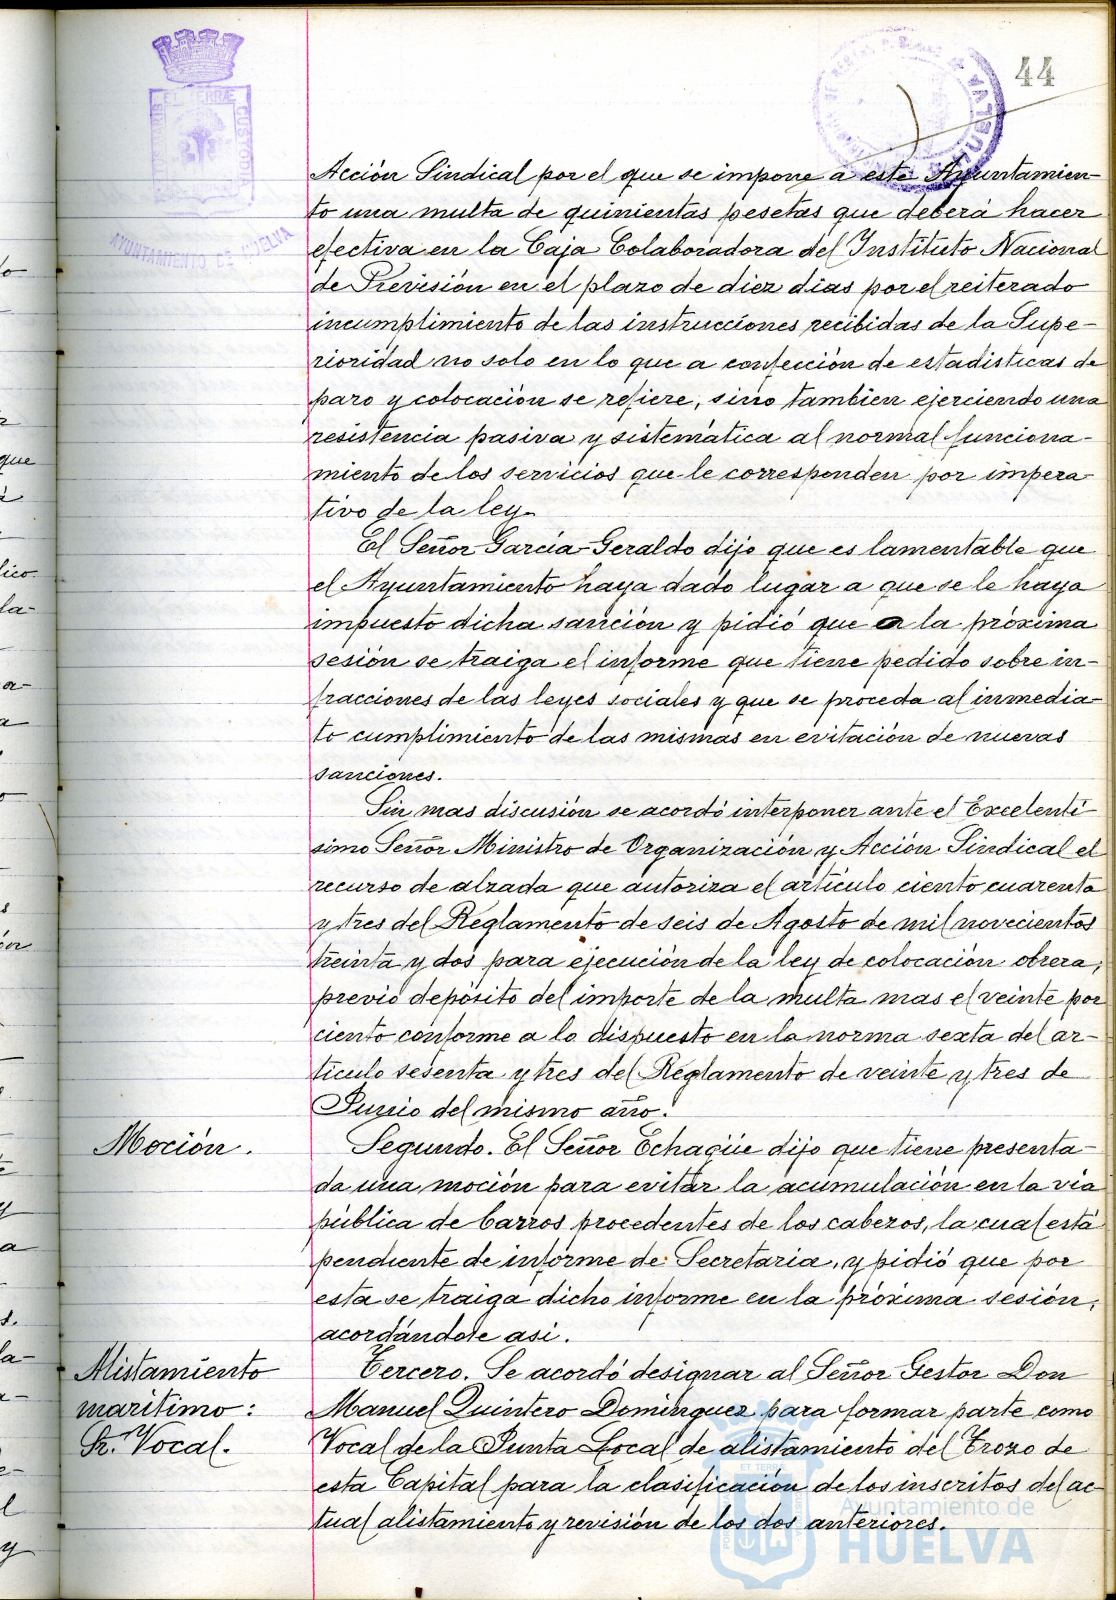 44
ET TERRÆ
CUSTODI
AYUNTAMIENTO DE HUELVA
HUELVA
Acción Sindical por el que se impone a este Ayuntamien-
to una multa de quinientas pesetas que deberá hacer
efectiva en la Caja Colaboradora del Instituto Nacional
de Previsión en el plazo de diez dias por el reiterado
incumplimiento de las instrucciones recibidas de la Supe-
rioridad no solo en lo que a confección de estadisticas de
paro y colocación se refiere, sino tambien ejerciendo una
resistencia pasiva y sistemática al normal funciona-
miento de los servicios que le corresponden por impera-
tivo de la ley.
El Señor García-Geraldo dijo que es lamentable que
el Ayuntamiento haya dado lugar a que se le haya
impuesto dicha sanción y pidió que a la próxima
sesión se traiga el informe que tiene pedido sobre in-
fracciones de las leyes sociales y que se proceda al inmedia-
to cumplimiento de las mismas en evitación de nuevas
sanciones.
Sin mas discusión se acordó interponer ante el Excelentí-
simo Señor Ministro de Organización y Acción Sindical el
recurso de alzada que autoriza el artículo ciento cuarenta
y tres del Reglamento de seis de Agosto de mil novecientos
treinta y dos para ejecución de la ley de colocación obrera,
previo depósito del importe de la multa mas el veinte por
ciento conforme a lo dispuesto en la norma sexta del ar-
tículo sesenta y tres del Reglamento de veinte y tres de
Junio del mismo año.
Moción.
Segundo. El Señor Echagüe dijo que tiene presenta-
da una moción para evitar la acumulación en la vía
pública de barros procedentes de los cabezos, la cual está
pendiente de informe de Secretaria, y pidió que por
esta se traiga dicho informe en la próxima sesión,
acordándose asi.
Alistamiento
marítimo:
Sr. Vocal.
Tercero. Se acordó designar al Señor Gestor Don
Manuel Quintero Dominguez para formar parte como
Vocal de la Junta Local de alistamiento del Trozo de
esta Capital para la clasificación de los inscritos del ac-
tual alistamiento y revisión de los dos anteriores.
Ayuntamiento de
HUELVA